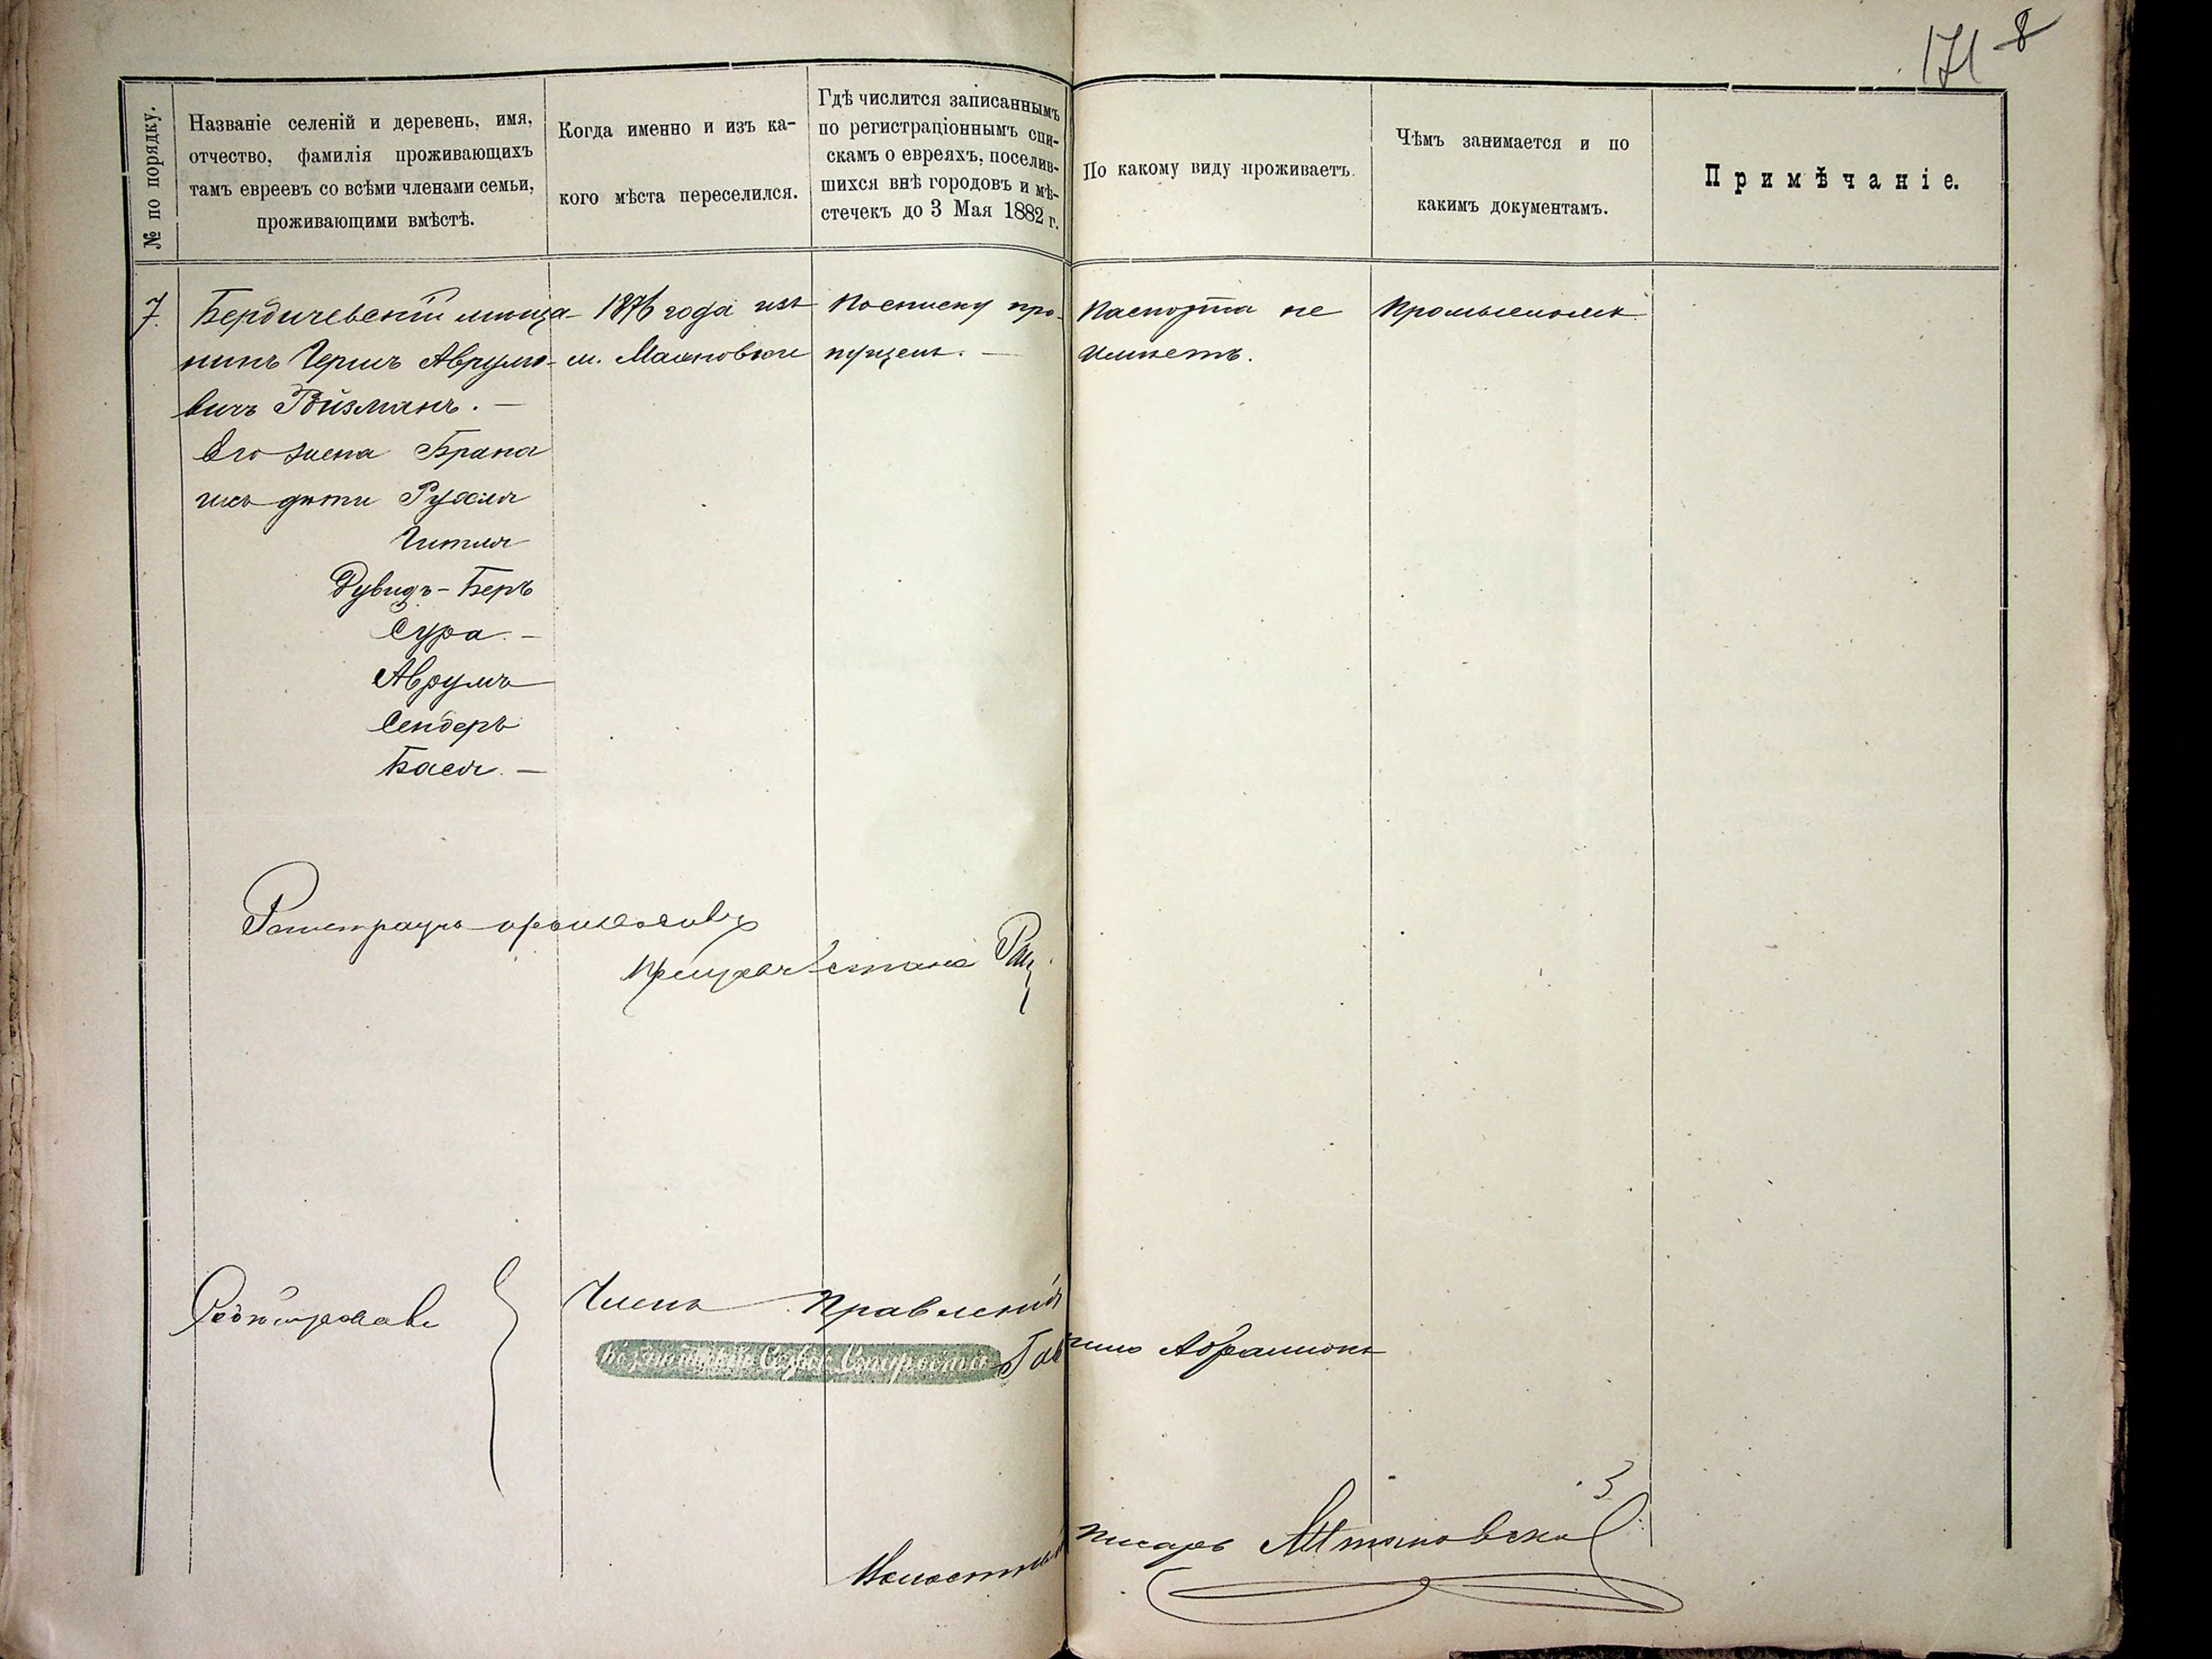 171 8
№ по порядку.
Названіе селеній и деревень, имя,
отчество, фамилія проживающихъ
тамъ евреевъ со всѣми членами семьи,
проживающими вмѣстѣ.
Когда именно и изъ ка-
кого мѣста переселился.
Гдѣ числится записаннымъ
по регистраціоннымъ спи-
скамъ о евреяхъ, поселив-
шихся внѣ городовъ и мѣ-
стечекъ до 3 Мая 1882 г.
По какому виду проживаетъ.
Чѣмъ занимается и по
какимъ документамъ.
Примѣчаніе.
7.
Бердичевскій мѣща-
нинъ Гершъ Аврумо-
вичъ Ройзманъ. —
Его жена Брана
ихъ дѣти Рухля
Гитля
Дувидъ-Беръ
Сура. —
Аврумъ
Сендеръ
Бася. —
1876 года изъ
м. Махновки
По списку про-
пущенъ. —
Паспорта не
имѣетъ.
Промысломъ
Приставъ стана
Членъ Правленія
Сельск. Староста
Абрамюкъ
Волостный писарь